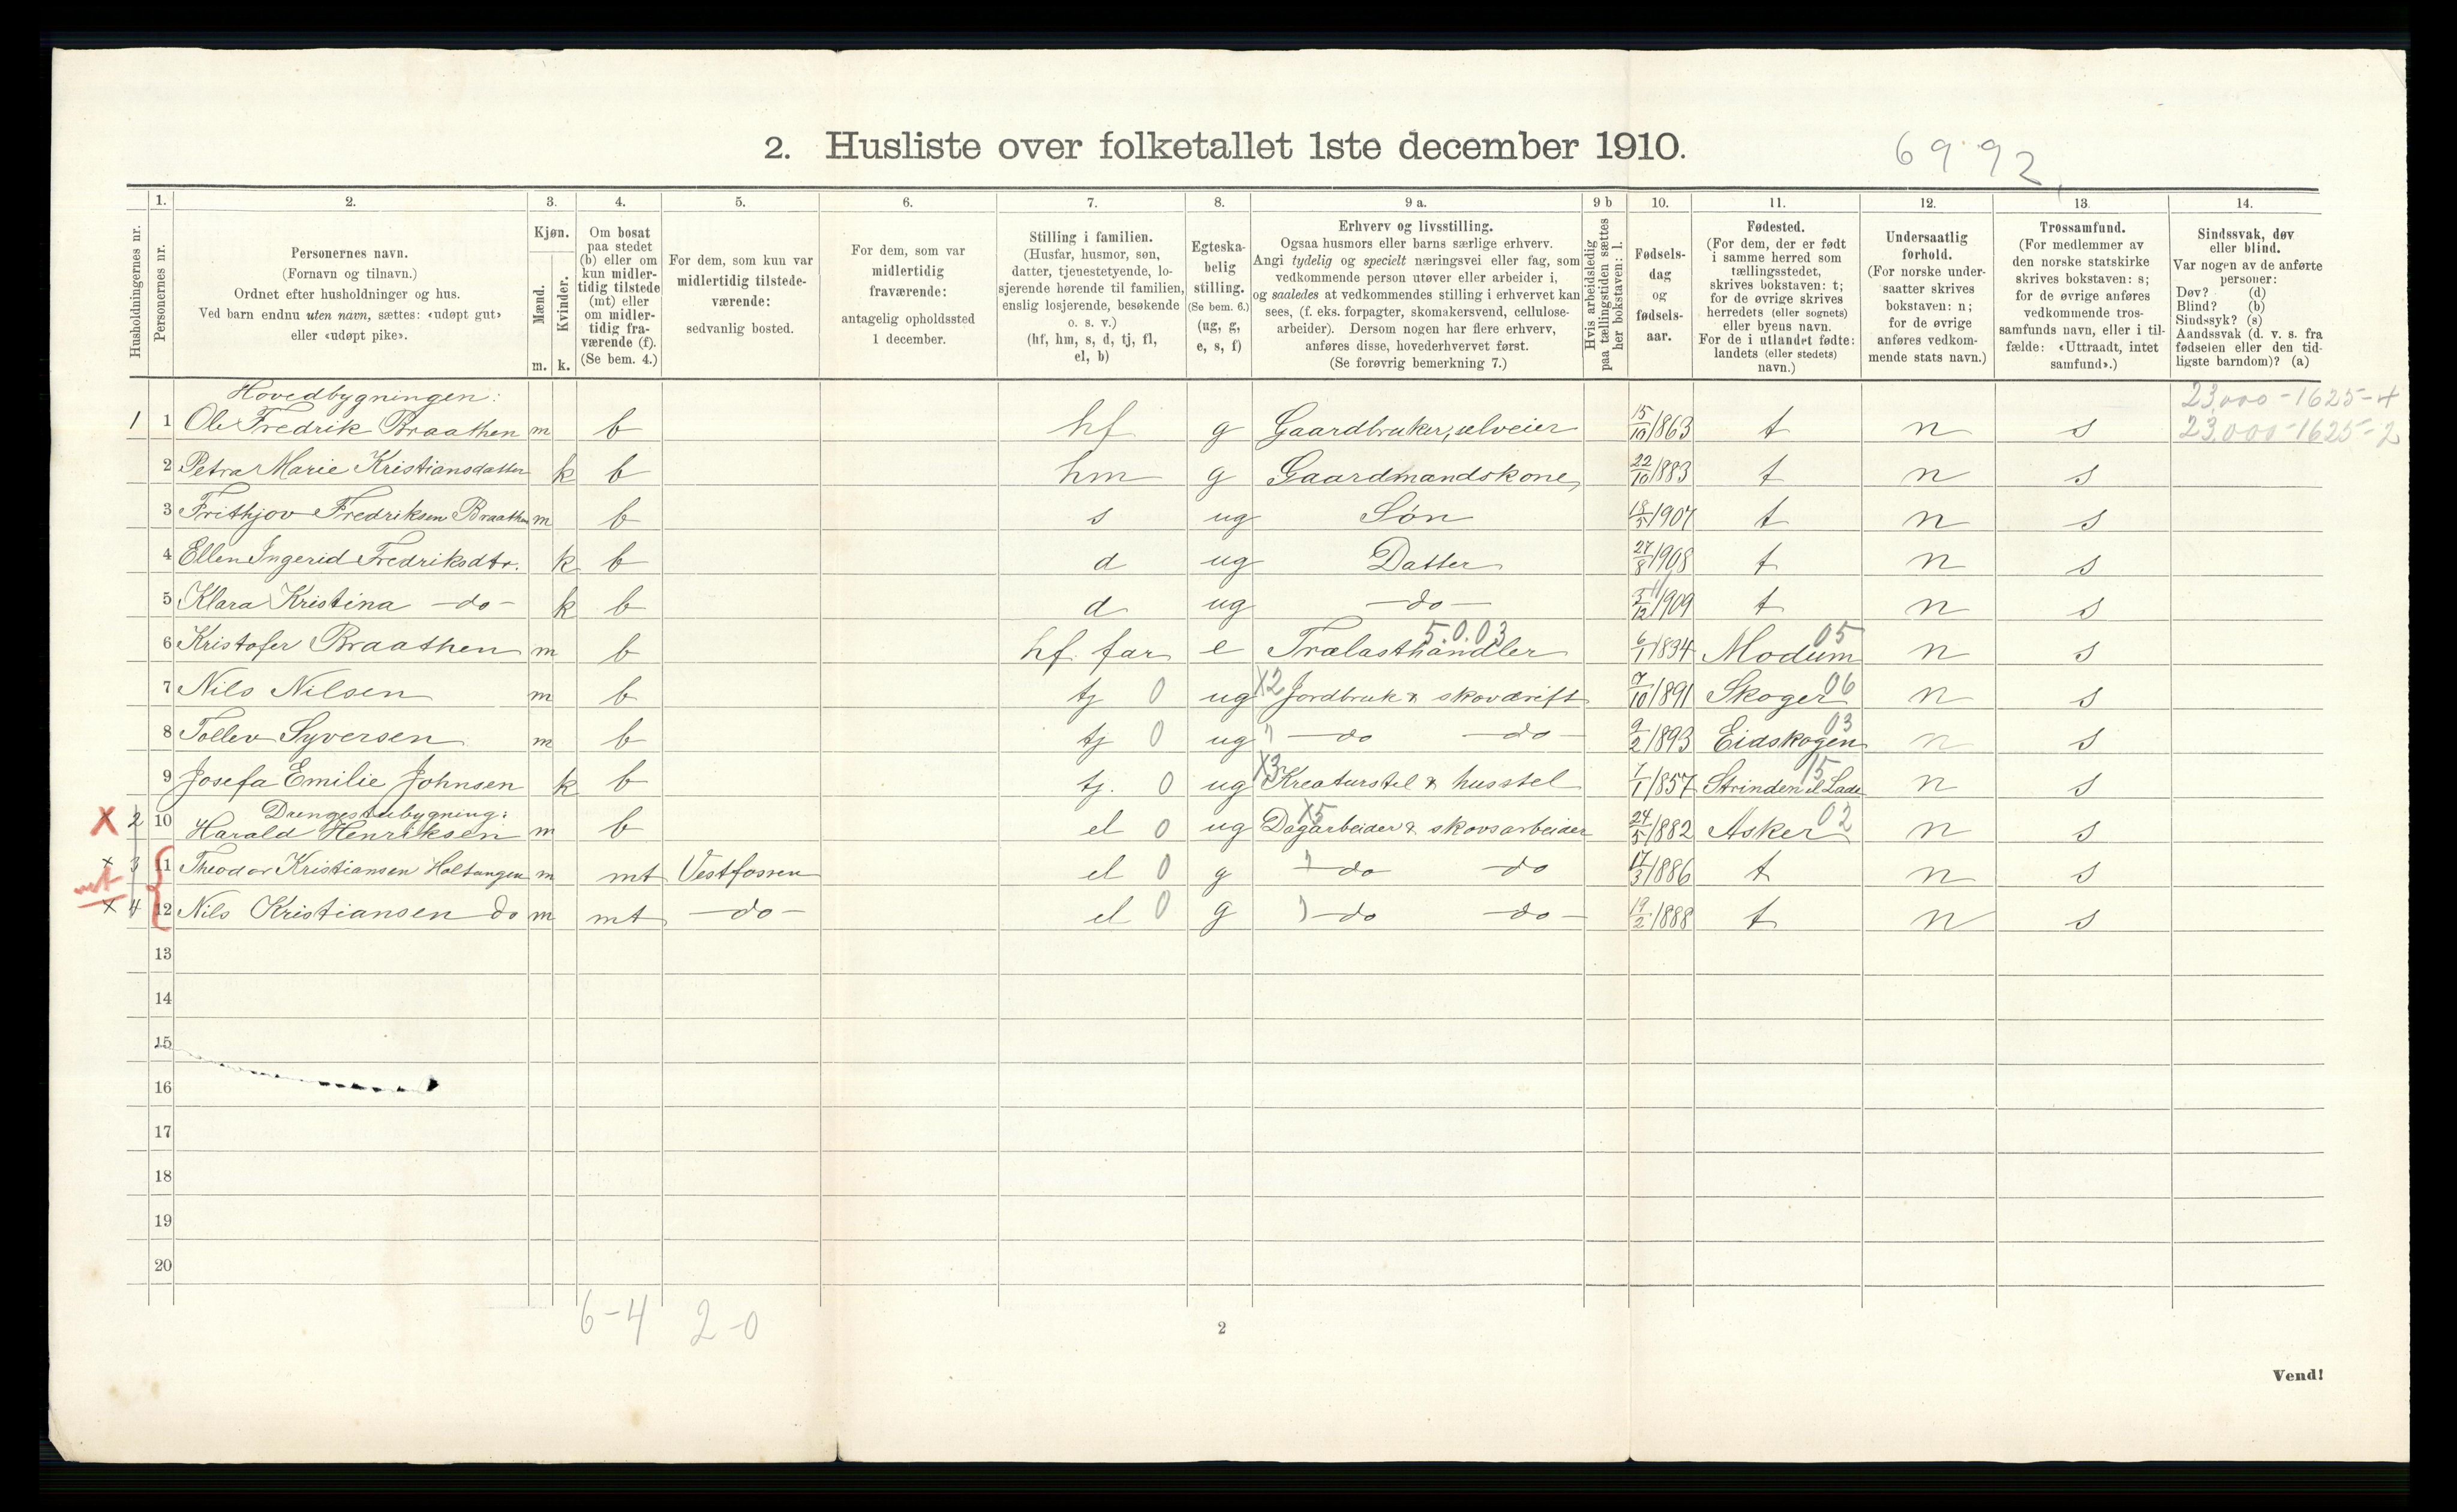 2. Husliste over folketallet 1ste december 1910.
69 92
Husholdningernes nr.
1.
Personernes nr.
2.
Personernes navn.
(Fornavn og tilnavn.)
Ordnet efter husholdninger og hus.
Ved barn endnu uten navn, sættes: «udøpt gut»
eller «udøpt pike».
3.
Kjøn.
Mænd.
Kvinder.
m. k.
4.
Om bosat
paa stedet
(b) eller om
kun midler-
tidig tilstede
(mt) eller
om midler-
tidig fra-
værende (f).
(Se bem. 4.)
5.
For dem, som kun var
midlertidig tilstede-
værende:
sedvanlig bosted.
6.
For dem, som var
midlertidig
fraværende:
antagelig opholdssted
1 december.
7.
Stilling i familien.
(Husfar, husmor, søn,
datter, tjenestetyende, lo-
sjerende hørende til familien,
enslig losjerende, besøkende
o. s. v.)
(hf, hm, s, d, tj, fl,
el, b)
8.
Egteska-
belig
stilling.
(Se bem. 6.)
(ug, g,
e, s, f)
9 a.
Erhverv og livsstilling.
Ogsaa husmors eller barns særlige erhverv.
Angi tydelig og specielt næringsvei eller fag, som
vedkommende person utøver eller arbeider i,
og saaledes at vedkommendes stilling i erhvervet kan
sees, (f. eks. forpagter, skomakersvend, cellulose-
arbeider). Dersom nogen har flere erhverv,
anføres disse, hovederhvervet først.
(Se forøvrig bemerkning 7.)
9 b
Hvis arbeidsledig
paa tællingstiden sættes
her bokstaven: l.
10.
Fødsels-
dag
og
fødsels-
aar.
11.
Fødested.
(For dem, der er født
i samme herred som
tællingsstedet,
skrives bokstaven: t;
for de øvrige skrives
herredets (eller sognets)
eller byens navn.
For de i utlandet fødte:
landets (eller stedets)
navn.)
12.
Undersaatlig
forhold.
(For norske under-
saatter skrives
bokstaven: n;
for de øvrige
anføres vedkom-
mende stats navn.)
13.
Trossamfund.
(For medlemmer av
den norske statskirke
skrives bokstaven: s;
for de øvrige anføres
vedkommende tros-
samfunds navn, eller i til-
fælde: «Uttraadt, intet
samfund».)
14.
Sindssvak, døv
eller blind.
Var nogen av de anførte
personer:
Døv? (d)
Blind? (b)
Sindssyk? (s)
Aandssvak (d. v. s. fra
fødselen eller den tid-
ligste barndom)? (a)
Hovedbygningen:
23,000-1625-4
1 1 Ole Fredrik Braathen m b hf g Gaardbruker, selveier 15/10 1863 t n s 23,000-1625-2
2 Petra Marie Kristiansdatter k b hm g Gaardmandskone 22/10 1883 t n s
3 Frithjov Fredriksen Braathen m b s ug Søn 18/5 1907 t n s
4 Ellen Ingerid Fredriksdtr. k b d ug Datter 27/8 1908 t n s
5 Klara Kristina -do- k b d ug -do- 5/12 1909 t n s
5.0.03 05
6 Kristofer Braathen m b hf. far e Trælasthandler 6/1 1834 Modum n s
7 Nils Nilsen m b tj 0 ug X2 Jordbruk & skovdrift 7/10 1891 Skoger 06 n s
8 Tollev Syversen m b tj 0 ug " -do -do- 9/2 1893 Eidskogen 03 n s
9 Josefa Emilie Johnsen k b tj. 0 ug X3 Kreaturstel & husstel 7/1 1857 Strinden el Lade 15 n s
Drengestubygning:
X 2 10 Harald Henriksen m b el 0 ug X5 Dagarbeider & skovsarbeider 24/5 1882 Asker 02 n s
x 3 11 Theodor Kristiansen Holtungen m mt Vestfossen el 0 g " -do do 17/3 1886 t n s
mt
x 4 12 Nils Kristiansen do m mt -do- el 0 g " -do -do- 19/2 1888 t n s
13
14
15
16
17
18
19
20
6-4 2-0
2
Vend!